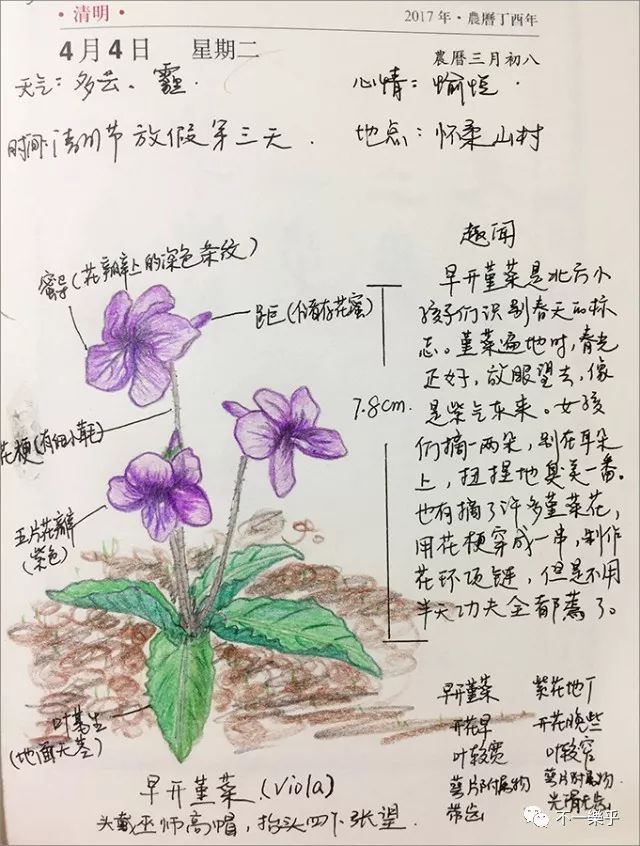 ·清明·
2017年·農曆丁酉年
4月4日 星期二
農曆三月初八
天气:多云、霾.
心情:愉悦.
时间:清明节放假第三天.
地点:怀柔山村
趣闻
早开堇菜是北方小
孩子们识别春天的标
志。堇菜遍地时,春光
正好,放眼望去,像
是紫气东来。女孩
们摘一两朵,别在耳朵
上,扭捏地臭美一番。
也有摘了许多堇菜花,
用花梗穿成一串,制作
花环项链,但是不用
半天功夫全都蔫了。
蜜导(花瓣上的深色条纹)
距(储存花蜜)
7.8cm.
花梗(有细小軞)
五片花瓣
(紫色)
叶基生
(地面无茎)
早开堇菜 紫花地丁
开花早 开花晚些
叶较宽 叶较窄
萼片附属物 萼片附属物
带齿 光滑无齿
早开堇菜(Viola)
头戴巫师高帽,抬头四下张望.
不一樂乎